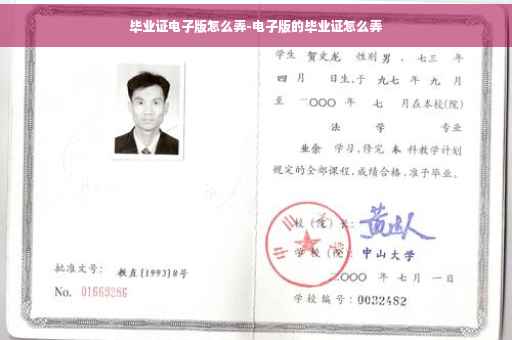 毕业证电子版怎么弄-电子版的毕业证怎么弄
学生 贺文龙 性别 男 、七三 年
四 月 日生,于 九七 年 九 月
至 二〇〇〇 年 七 月在本校(院)
法 学 专业
业余 学习,修完 本 科教学计划
规定的全部课程,成绩合格,准予毕业。
校(院)长:
学 校(院): 中山大学
二〇〇〇 年 七 月 一 日
学校编号: 0032482
批准文号: 教直(1993)8号
No. 01669286